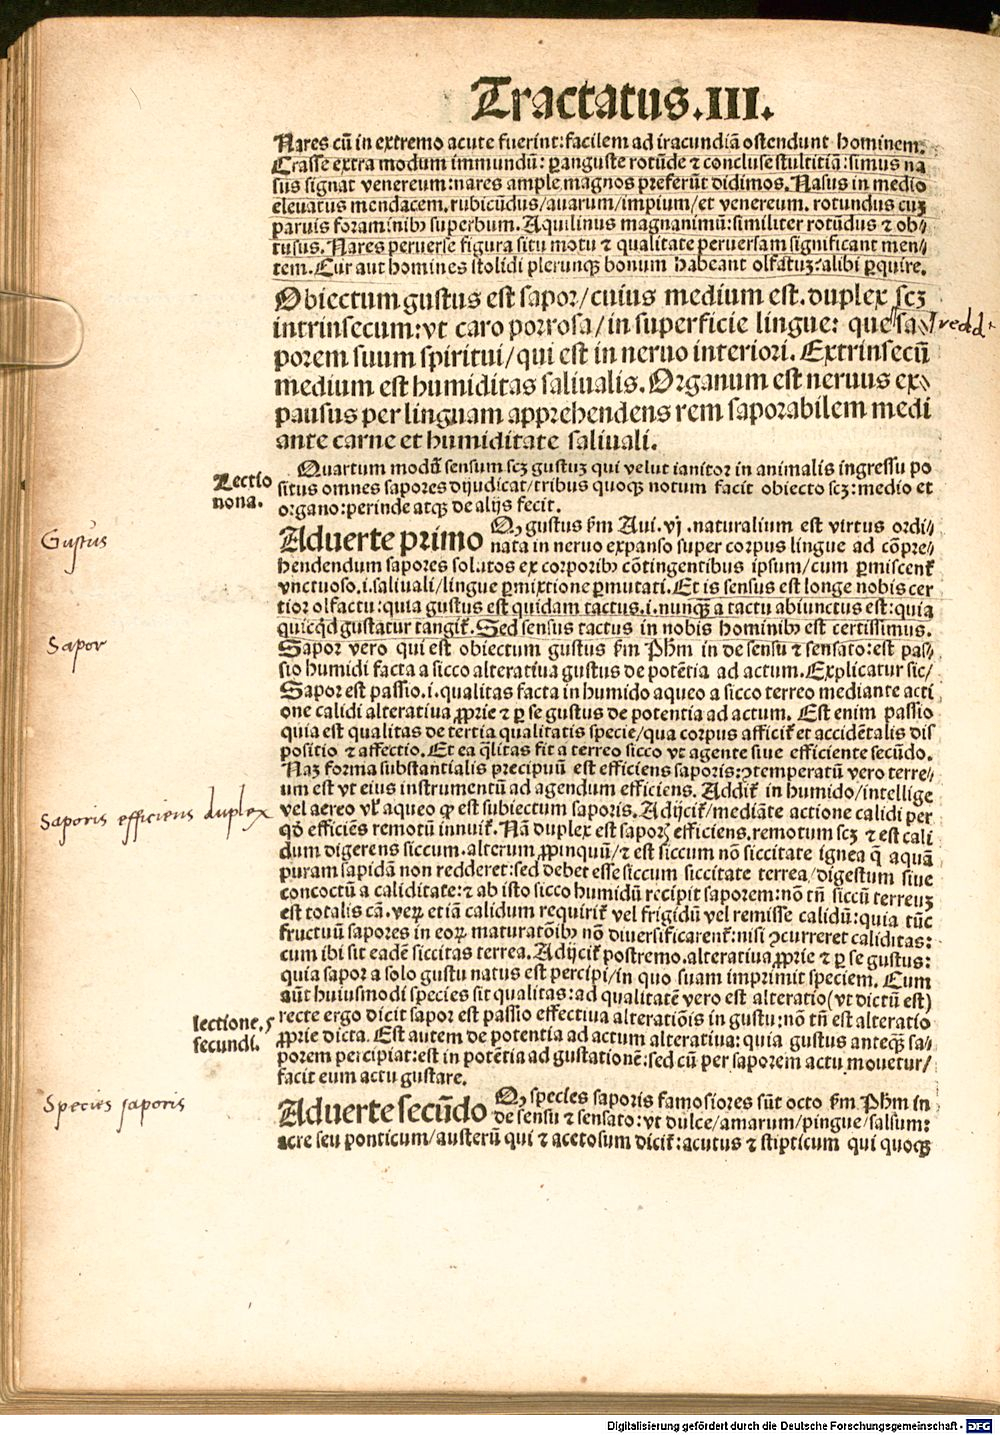 Tractatus.III.
Nares cū in extremo acute fuerint:facilem ad iracundiā ostendunt hominem.
Crasse extra modum immundū: ꝑanguste rotūde ⁊ concluse stultitiā:simus na
sus signat venereum:nares ample magnos preferūt didimos. Nasus in medio
eleuatus mendacem. rubicūdus/auarum/impium/et venereum. rotundus cuꝫ
paruis foraminibꝰ superbum. Aquilinus magnanimū:similiter rotūdus ⁊ ob⸗
tusus. Nares peruerse figura situ motu ⁊ qualitate peruersam significant men⸗
tem. Cur aut homines stolidi plerunqꝫ bonum habeant olfatuꝫ:alibi ꝑquire.
Obiectum gustus est sapor/cuius medium est.duplex scꝫ
intrinsecum:vt caro porrosa/in superficie lingue: que sa⸗ redd.
porem suum spiritui/qui est in neruo interiori. Extrinsecū
medium est humiditas saliualis. Organum est neruus ex⸗
pausus per linguam apprehendens rem saporabilem medi
ante carne et humiditate saliuali.
Lectio
nona.
Quartum modū sensum scꝫ gustuꝫ qui velut ianitor in animalis ingressu po
situs omnes sapores dijudicat/tribus quoqꝫ notum facit obiecto scꝫ:medio et
organo:perinde atqꝫ de alijs fecit.
Gustus
Aduerte primo Qꝫ gustus ẜm Aui. vj .naturalium est virtus ordi⸗
nata in neruo expanso super corpus lingue ad cōpre⸗
hendendum sapores solutos ex corporibꝰ cōtingentibus ipsum/cum ꝑmiscent̄
vnctuoso.i.saliuali/lingue ꝑmixtione ꝑmutati. Et is sensus est longe nobis cer
tior olfactu:quia gustus est quidam tactus.i.nunqꝫ a tactu abiunctus est:quia
quicqͥd gustatur tangit̄. Sed sensus tactus in nobis hominibꝰ est certissimus.
Sapor
Sapor vero qui est obiectum gustus ẜm Phm in de sensu ⁊ sensato:est pas⸗
sio humidi facta a sicco alteratiua gustus de potētia ad actum. Explicatur sic/
Sapor est passio.i.qualitas facta in humido aqueo a sicco terreo mediante acti
one calidi alteratiua ꝓprie ⁊ ꝑ se gustus de potentia ad actum. Est enim passio
quia est qualitas de tertia qualitatis specie/qua corpus afficit̄ et accidētalis dis
positio ⁊ affectio. Et ea q̄litas fit a terreo sicco vt agente siue efficiente secūdo.
Naꝫ forma substantialis precipuū est efficiens saporis:ꝯtemperatū vero terre⸗
um est vt eius instrumentū ad agendum efficiens. Addit̄ in humido/intellige
Saporis efficiens duplex
vel aereo vl̓ aqueo qꝫ est subiectum saporis. Adijcit̄/mediāte actione calidi per
qd̓ efficiēs remotū innuit̄. Nā duplex est saporꝫ efficiens. remotum scꝫ ⁊ est cali
dum digerens siccum.alterum ꝓpinquū/⁊ est siccum nō siccitate ignea q̄ aquā
puram sapidā non redderet:sed debet esse siccum siccitate terrea/digestum siue
concoctū a caliditate:⁊ ab isto sicco humidū recipit saporem:nō tn̄ siccū terreuꝫ
est totalis cā.veꝝ etiā calidum requirit̄ vel frigidū vel remisse calidū:quia tūc
fructuū sapores in eoꝝ maturatōibꝰ nō diuersificarent̄:nisi ꝯcurreret caliditas:
cum ibi sit eadē siccitas terrea. Adijcit̄ postremo.alteratiua ꝓprie ⁊ ꝑ se gustus:
quia sapor a solo gustu natus est percipi/in quo suam imprimit speciem. Cum
aūt huiusmodi species sit qualitas:ad qualitatē vero est alteratio(vt dictū est)
lectione.5
secundi.
recte ergo dicit sapor est passio effectiua alteratiōis in gustu:nō tn̄ est alteratio
ꝓprie dicta. Est autem de potentia ad actum alteratiua:quia gustus anteqꝫ sa⸗
porem percipiat:est in potētia ad gustationē:sed cū per saporem actu mouetur/
facit eum actu gustare.
Species saporis
Aduerte secūdo Qꝫ species saporis famosiores sūt octo ẜm Phm in
de sensu ⁊ sensato:vt dulce/amarum/pingue/salsum:
acre seu ponticum/austerū qui ⁊ acetosum dicit̄:acutus ⁊ stipticum qui quoqꝫ
Digitalisierung gefördert durch die Deutsche Forschungsgemeinschaft - DFG